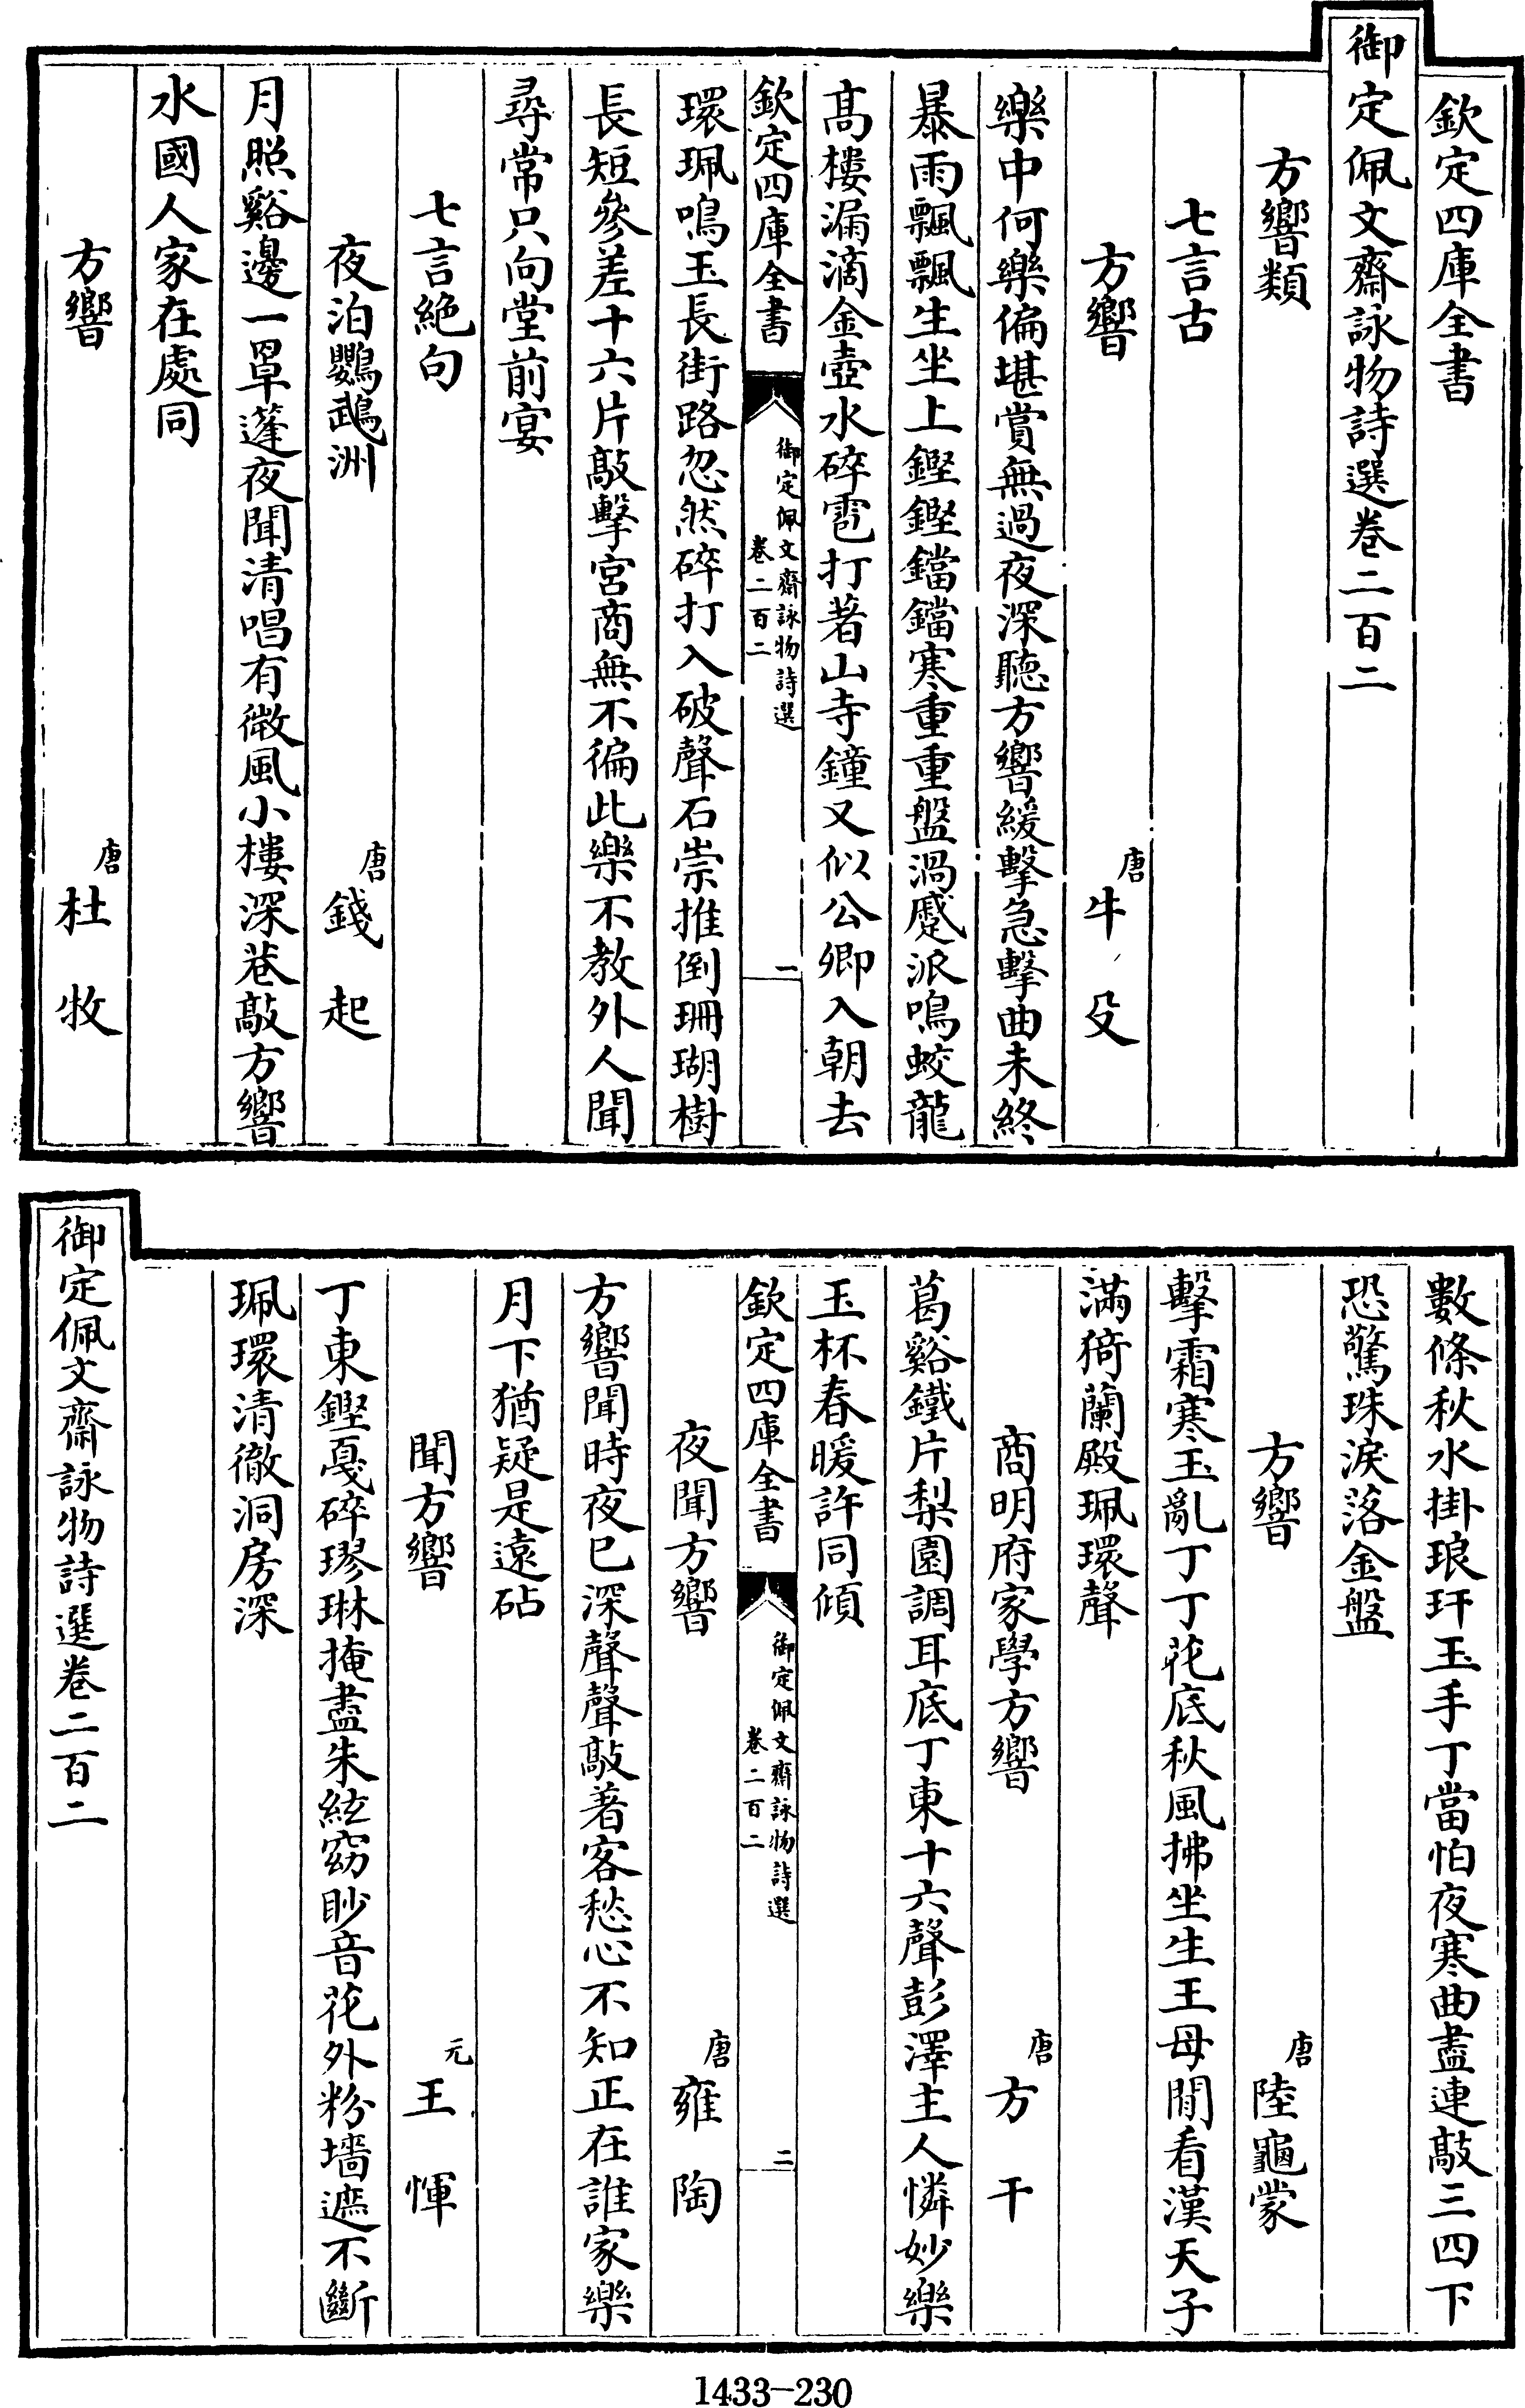 欽定四庫全書
御定佩文齋詠物詩選卷二百二
方響類
七言古
方響　唐　牛殳
樂中何樂偏堪賞無過夜深聽方響緩擊急擊曲未終
暴雨飄飄生坐上鏗鏗鐺鐺寒重重盤渦蹙派鳴蛟龍
髙樓漏滴金壺水碎雹打著山寺鐘又似公卿入朝去
欽定四庫全書　御定佩文齋詠物詩選　卷二百二　一
環珮鳴玉長街路忽然碎打入破聲石崇推倒珊瑚樹
長短參差十六片敲擊宮商無不徧此樂不教外人聞
尋常只向堂前宴
七言絶句
夜泊鸚鵡洲　唐　錢起
月照谿邊一罩蓬夜聞清唱有微風小樓深巷敲方響
水國人家在處同
方響　唐　杜牧
數條秋水掛琅玕玉手丁當怕夜寒曲盡連敲三四下
恐驚珠淚落金盤
方響　唐　陸龜蒙
擊霜寒玉亂丁丁花底秋風拂坐生王母閒看漢天子
滿猗蘭殿珮環聲
商明府家學方響　唐　方干
葛谿鐵片梨園調耳底丁東十六聲彭澤主人憐妙樂
玉杯春暖許同傾
欽定四庫全書　御定佩文齋詠物詩選　卷二百二　二
夜聞方響　唐　雍陶
方響聞時夜已深聲聲敲著客愁心不知正在誰家樂
月下猶疑是遠砧
聞方響　元　王惲
丁東鏗戛碎璆琳掩盡朱絃窈眇音花外粉墻遮不斷
珮環清徹洞房深
御定佩文齋詠物詩選卷二百二
1433-230